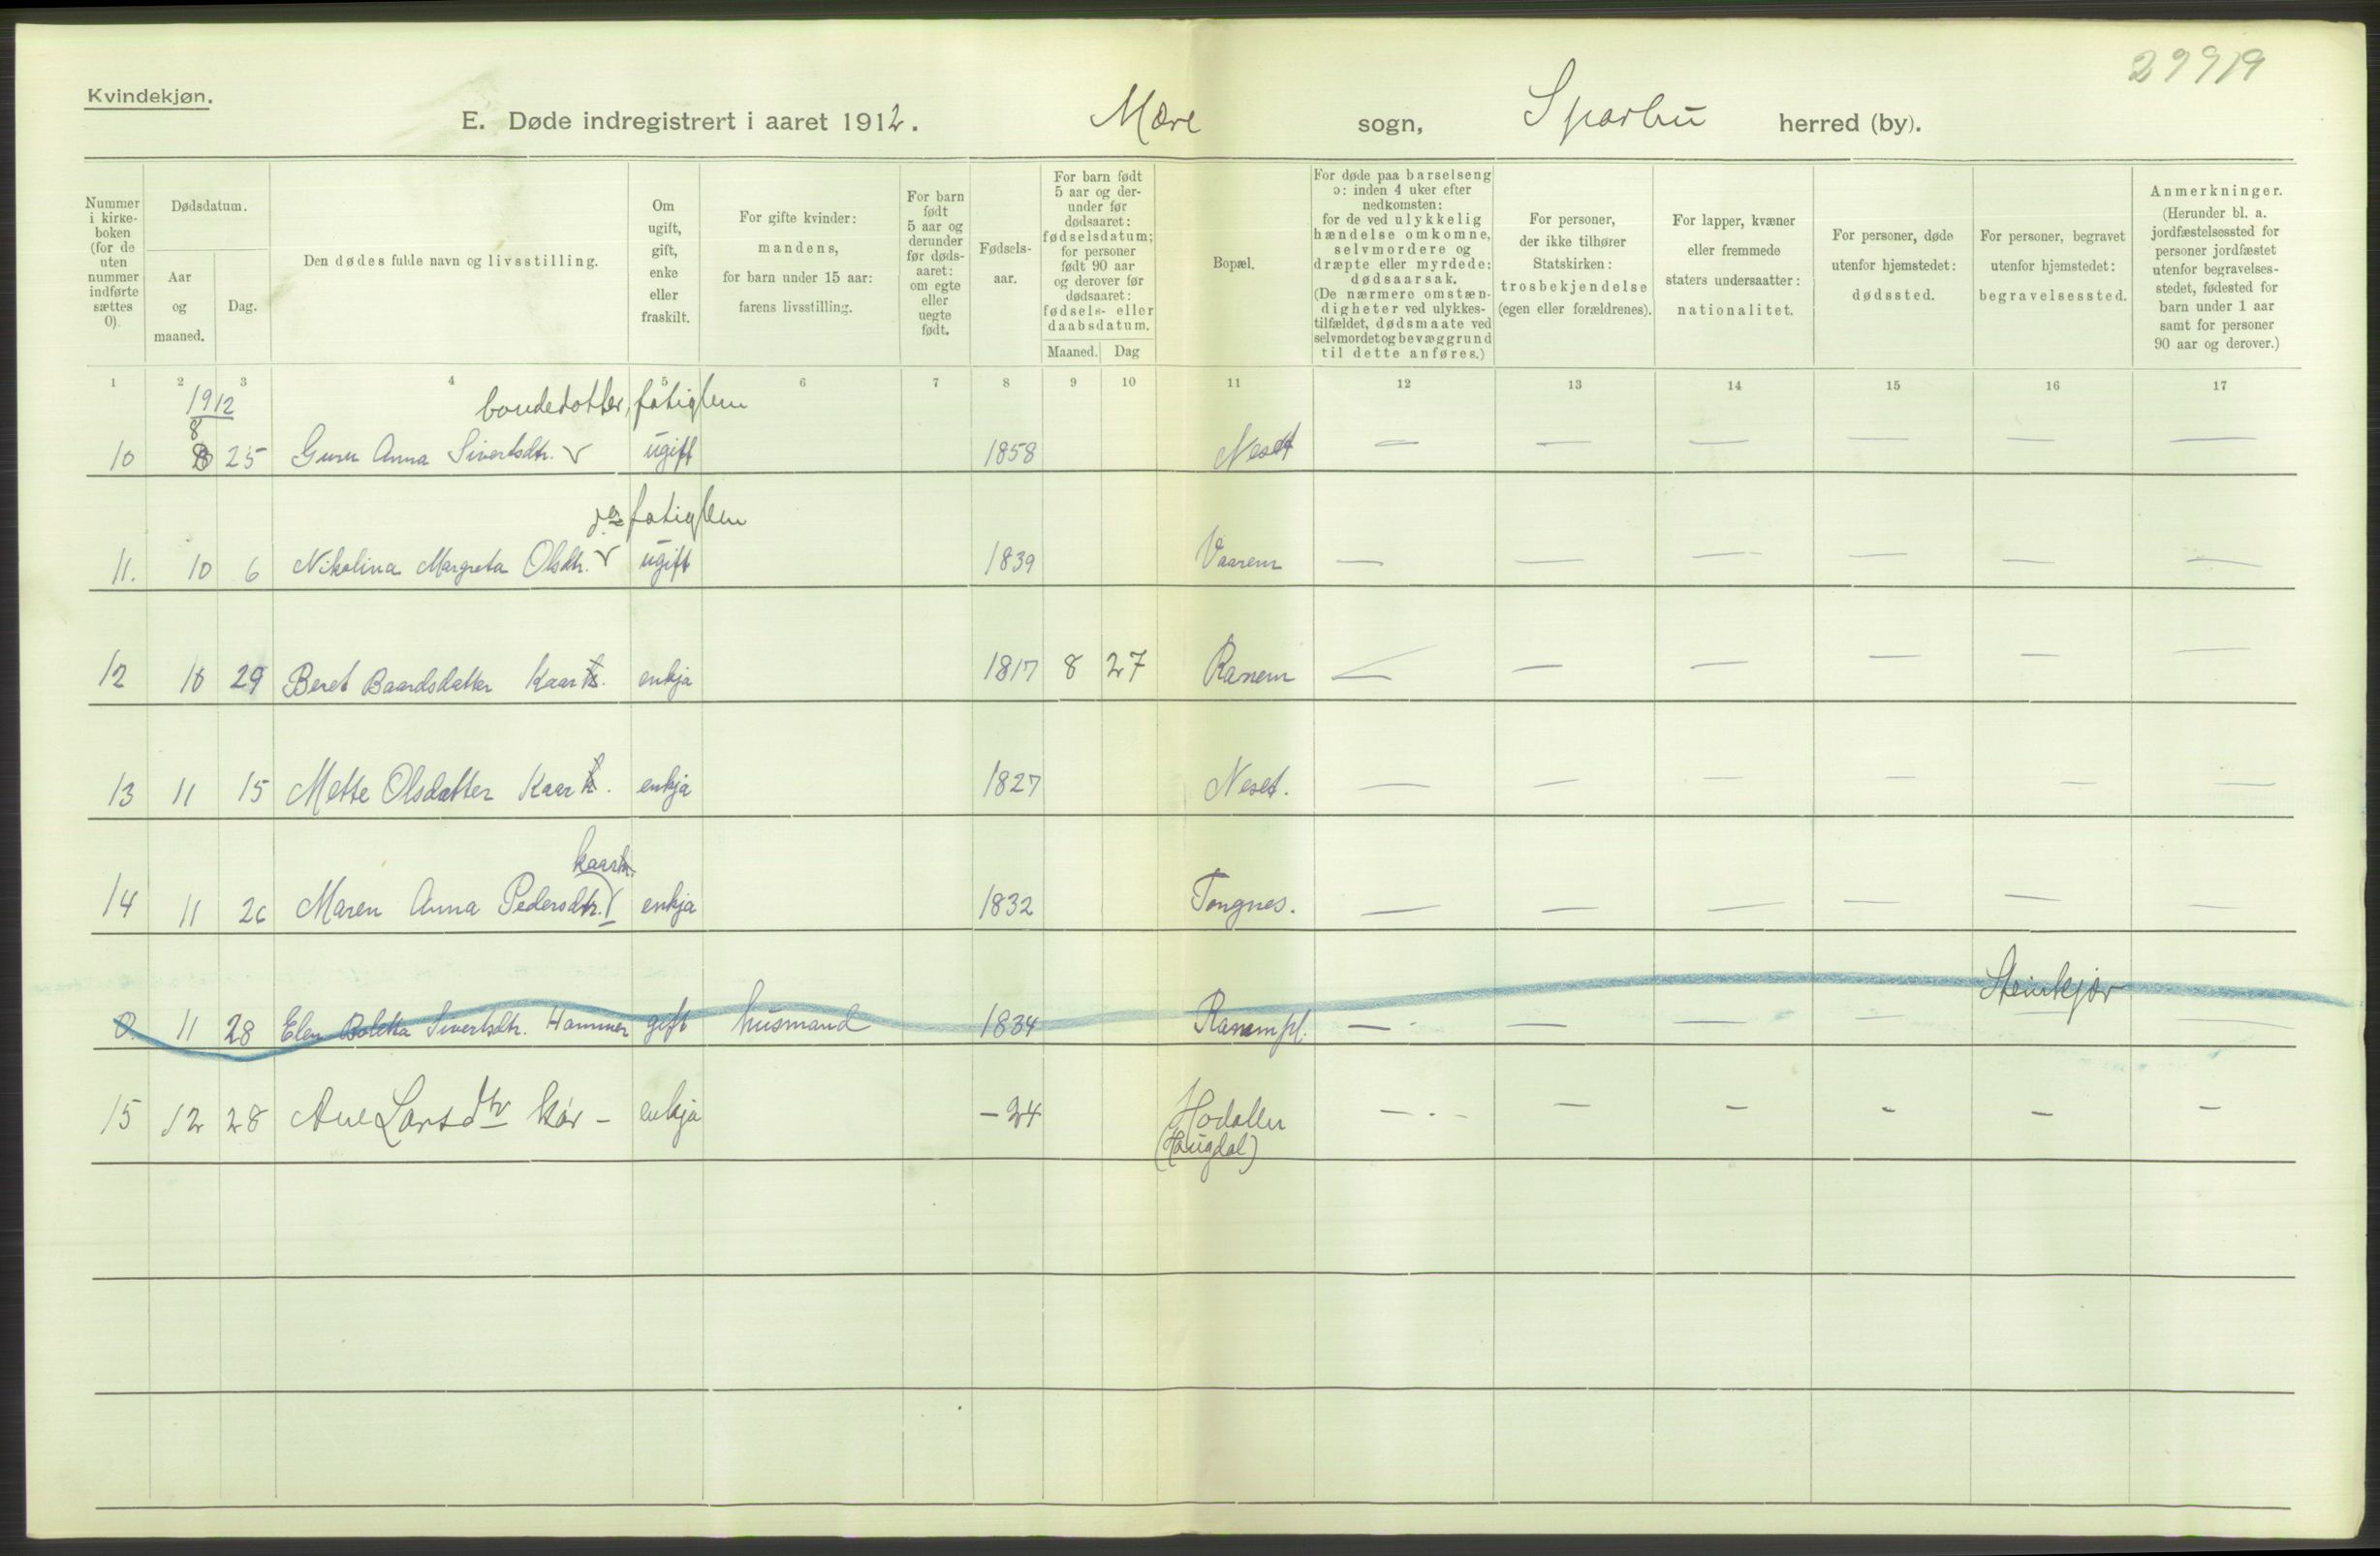 29919
Kvindekjøn.
E. Døde indregistrert i aaret 1912. Mære sogn, Sparbu herred (by).
Nummer i kirke- boken (for de uten nummer indførte sættes 0).
Dødsdatum.
Aar og maaned.
Dag.
Den dødes fulde navn og livsstilling.
Om ugift, gift, enke eller fraskilt.
For gifte kvinder: mandens, for barn under 15 aar: farens livsstilling.
For barn født 5 aar og derunder før døds- aaret: om egte eller uegte født.
Fødsels- aar.
For barn født 5 aar og der- under før dødsaaret: fødselsdatum; for personer født 90 aar og derover før dødsaaret: fødsels- eller daabsdatum.
Maaned. Dag
Bopæl.
For døde paa barselseng ɔ: inden 4 uker efter nedkomsten: for de ved ulykkelig hændelse omkomne, selvmordere og dræpte eller myrdede: dødsaarsak. (De nærmere omstæn- digheter ved ulykkes- tilfældet, dødsmaate ved selvmordet og bevæggrund til dette anføres.)
For personer, der ikke tilhører Statskirken: trosbekjendelse (egen eller forældrenes).
For lapper, kvæner eller fremmede staters undersaatter: nationalitet.
For personer, døde utenfor hjemstedet: dødssted.
For personer, begravet utenfor hjemstedet: begravelsessted.
Anmerkninger. (Herunder bl. a. jordfæstelsessted for personer jordfæstet utenfor begravelses- stedet, fødested for barn under 1 aar samt for personer 90 aar og derover.)
1 2 3 4 5 6 7 8 9 10 11 12 13 14 15 16 17
1912 bondedotter, fatiglem
10 8 25 Guru Anna Sivertsdtr. ugift 1858 Neset — — — — — —
do fatiglem
11. 10 6 Nikolina Margreta Olsdtr. ugift 1839 Vaarem — — — — — —
12 10 29 Beret Baardsdatter Kaark. enkja 1817 8 27 Ranem — — — — — —
13 11 15 Mette Olsdatter Kaark. enkja 1827 Neset. — — — — — —
kaark.
14 11 26 Maren Anna Pedersdtr. enkja 1832 Tongnes. — — — — — —
0. 11 28 Elen Sivertsdtr. Hammer gift husmand 1834 Ranempl. — — — — Steinkjær —
15 12 28 Ane Larsdtr kår- enkja -24 Hodallu — — — — — —
(Haugdal)